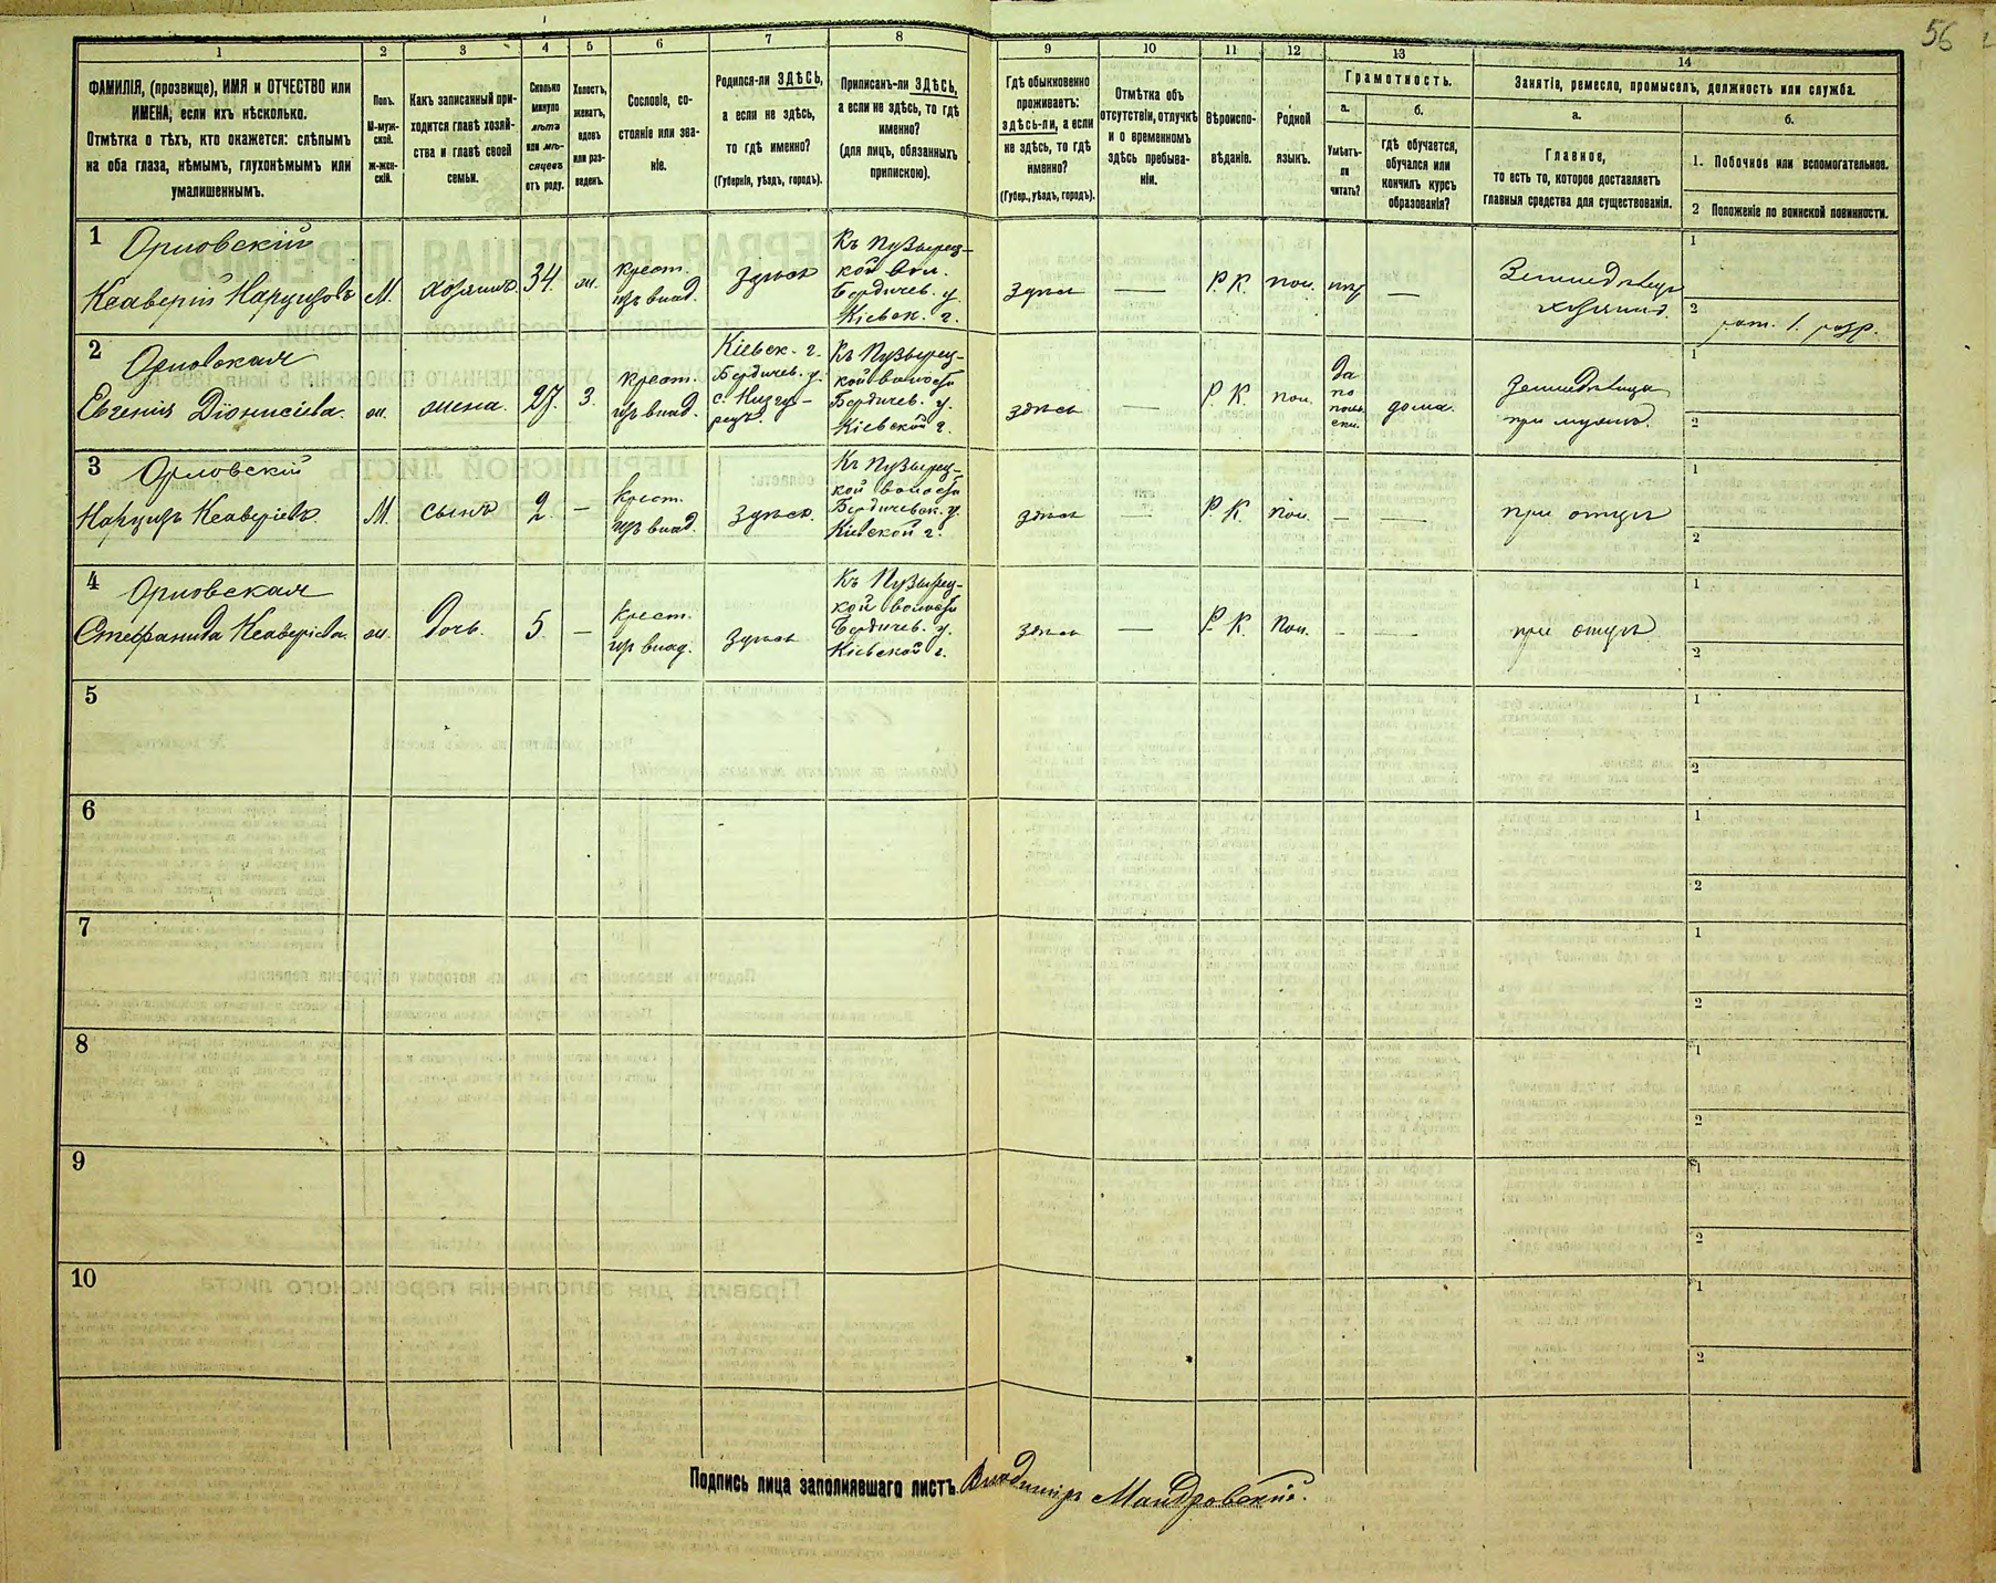 56
1
2
3
4
5
6
7
8
9
10
11
12
13
14
ФАМИЛІЯ, (прозвище), ИМЯ и ОТЧЕСТВО или
ИМЕНА, если ихъ нѣсколько.
Отмѣтка о тѣхъ, кто окажется: слѣпымъ
на оба глаза, нѣмымъ, глухонѣмымъ или
умалишеннымъ.
Полъ.
М-муж-
ской.
ж-жен-
скій.
Какъ записанный при-
ходится главѣ хозяй-
ства и главѣ своей
семьи.
Сколько
минуло
лѣтъ
или мѣ-
сяцевъ
отъ роду.
Холостъ,
женатъ,
вдовъ
или раз-
веденъ.
Сословіе, со-
стояніе или зва-
ніе.
Родился-ли ЗДѢСЬ,
а если не здѣсь,
то гдѣ именно?
(Губернія, уѣздъ, городъ).
Приписанъ-ли ЗДѢСЬ,
а если не здѣсь, то гдѣ
именно?
(для лицъ, обязанныхъ
припискою).
Гдѣ обыкновенно
проживаетъ:
здѣсь-ли, а если
не здѣсь, то гдѣ
именно?
(Губер., уѣздъ, городъ).
Отмѣтка объ
отсутствіи, отлучкѣ
и о временномъ
здѣсь пребыва-
ніи.
Вѣроиспо-
вѣданіе.
Родной
языкъ.
Грамотность.
а.
Умѣетъ-
ли
читать?
б.
гдѣ обучается,
обучался или
кончилъ курсъ
образованія?
Занятія, ремесло, промыселъ, должность или служба.
а.
Главное,
то есть то, которое доставляетъ
главныя средства для существованія.
б.
1. Побочное или вспомогательное.
2 Положеніе по воинской повинности.
1
Орловскій
Ксаверій Нарцизовъ
М.
хозяинъ.
34.
ж.
крест.
изъ влад.
здѣсь
Къ Пузырец-
кой вол.
Бердичев. у.
Кіевск. г.
здѣсь
—
Р. К.
пол.
нѣт
—
Земледѣлецъ
хозяинъ.
1
2
рат. 1. разр.
2
Орловская
Евгенія Діонисіева.
ж.
жена.
27.
З.
крест.
изъ влад.
Кіевск. г.
Бердичев. у.
Къ Пузырец-
кой волости
Бердичев. у.
Кіевской г.
здѣсь
—
Р. К.
пол.
Да
по
поль
ски.
дома.
Земледѣлица
при мужѣ.
1
2
3
Орловскій
Нарцизъ Ксаверіевъ.
М.
сынъ
2.
—
крест.
изъ влад.
здѣсь.
Къ Пузырец-
кой волости
Бердичевск. у.
Кіевской г.
здѣсь
—
Р. К.
пол.
—
—
при отцѣ
1
2
4
Орловская
Стефанида Ксаверіева.
ж.
дочь.
5.
—
крест.
изъ влад.
здѣсь
Къ Пузырец-
кой волости
Бердичев. у.
Кіевской г.
здѣсь
—
Р. К.
пол.
—
—
при отцѣ
1
2
5
1
2
6
1
2
7
1
2
8
1
2
9
1
2
10
1
2
Подпись лица заполнявшаго листъ. Владиміръ Мандровскій.